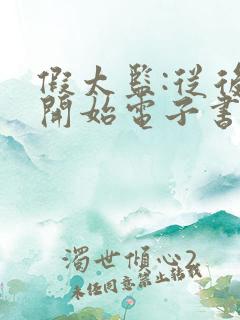 假太監:從後
開始電子書
濁世傾心2
未任同意禁止轉載